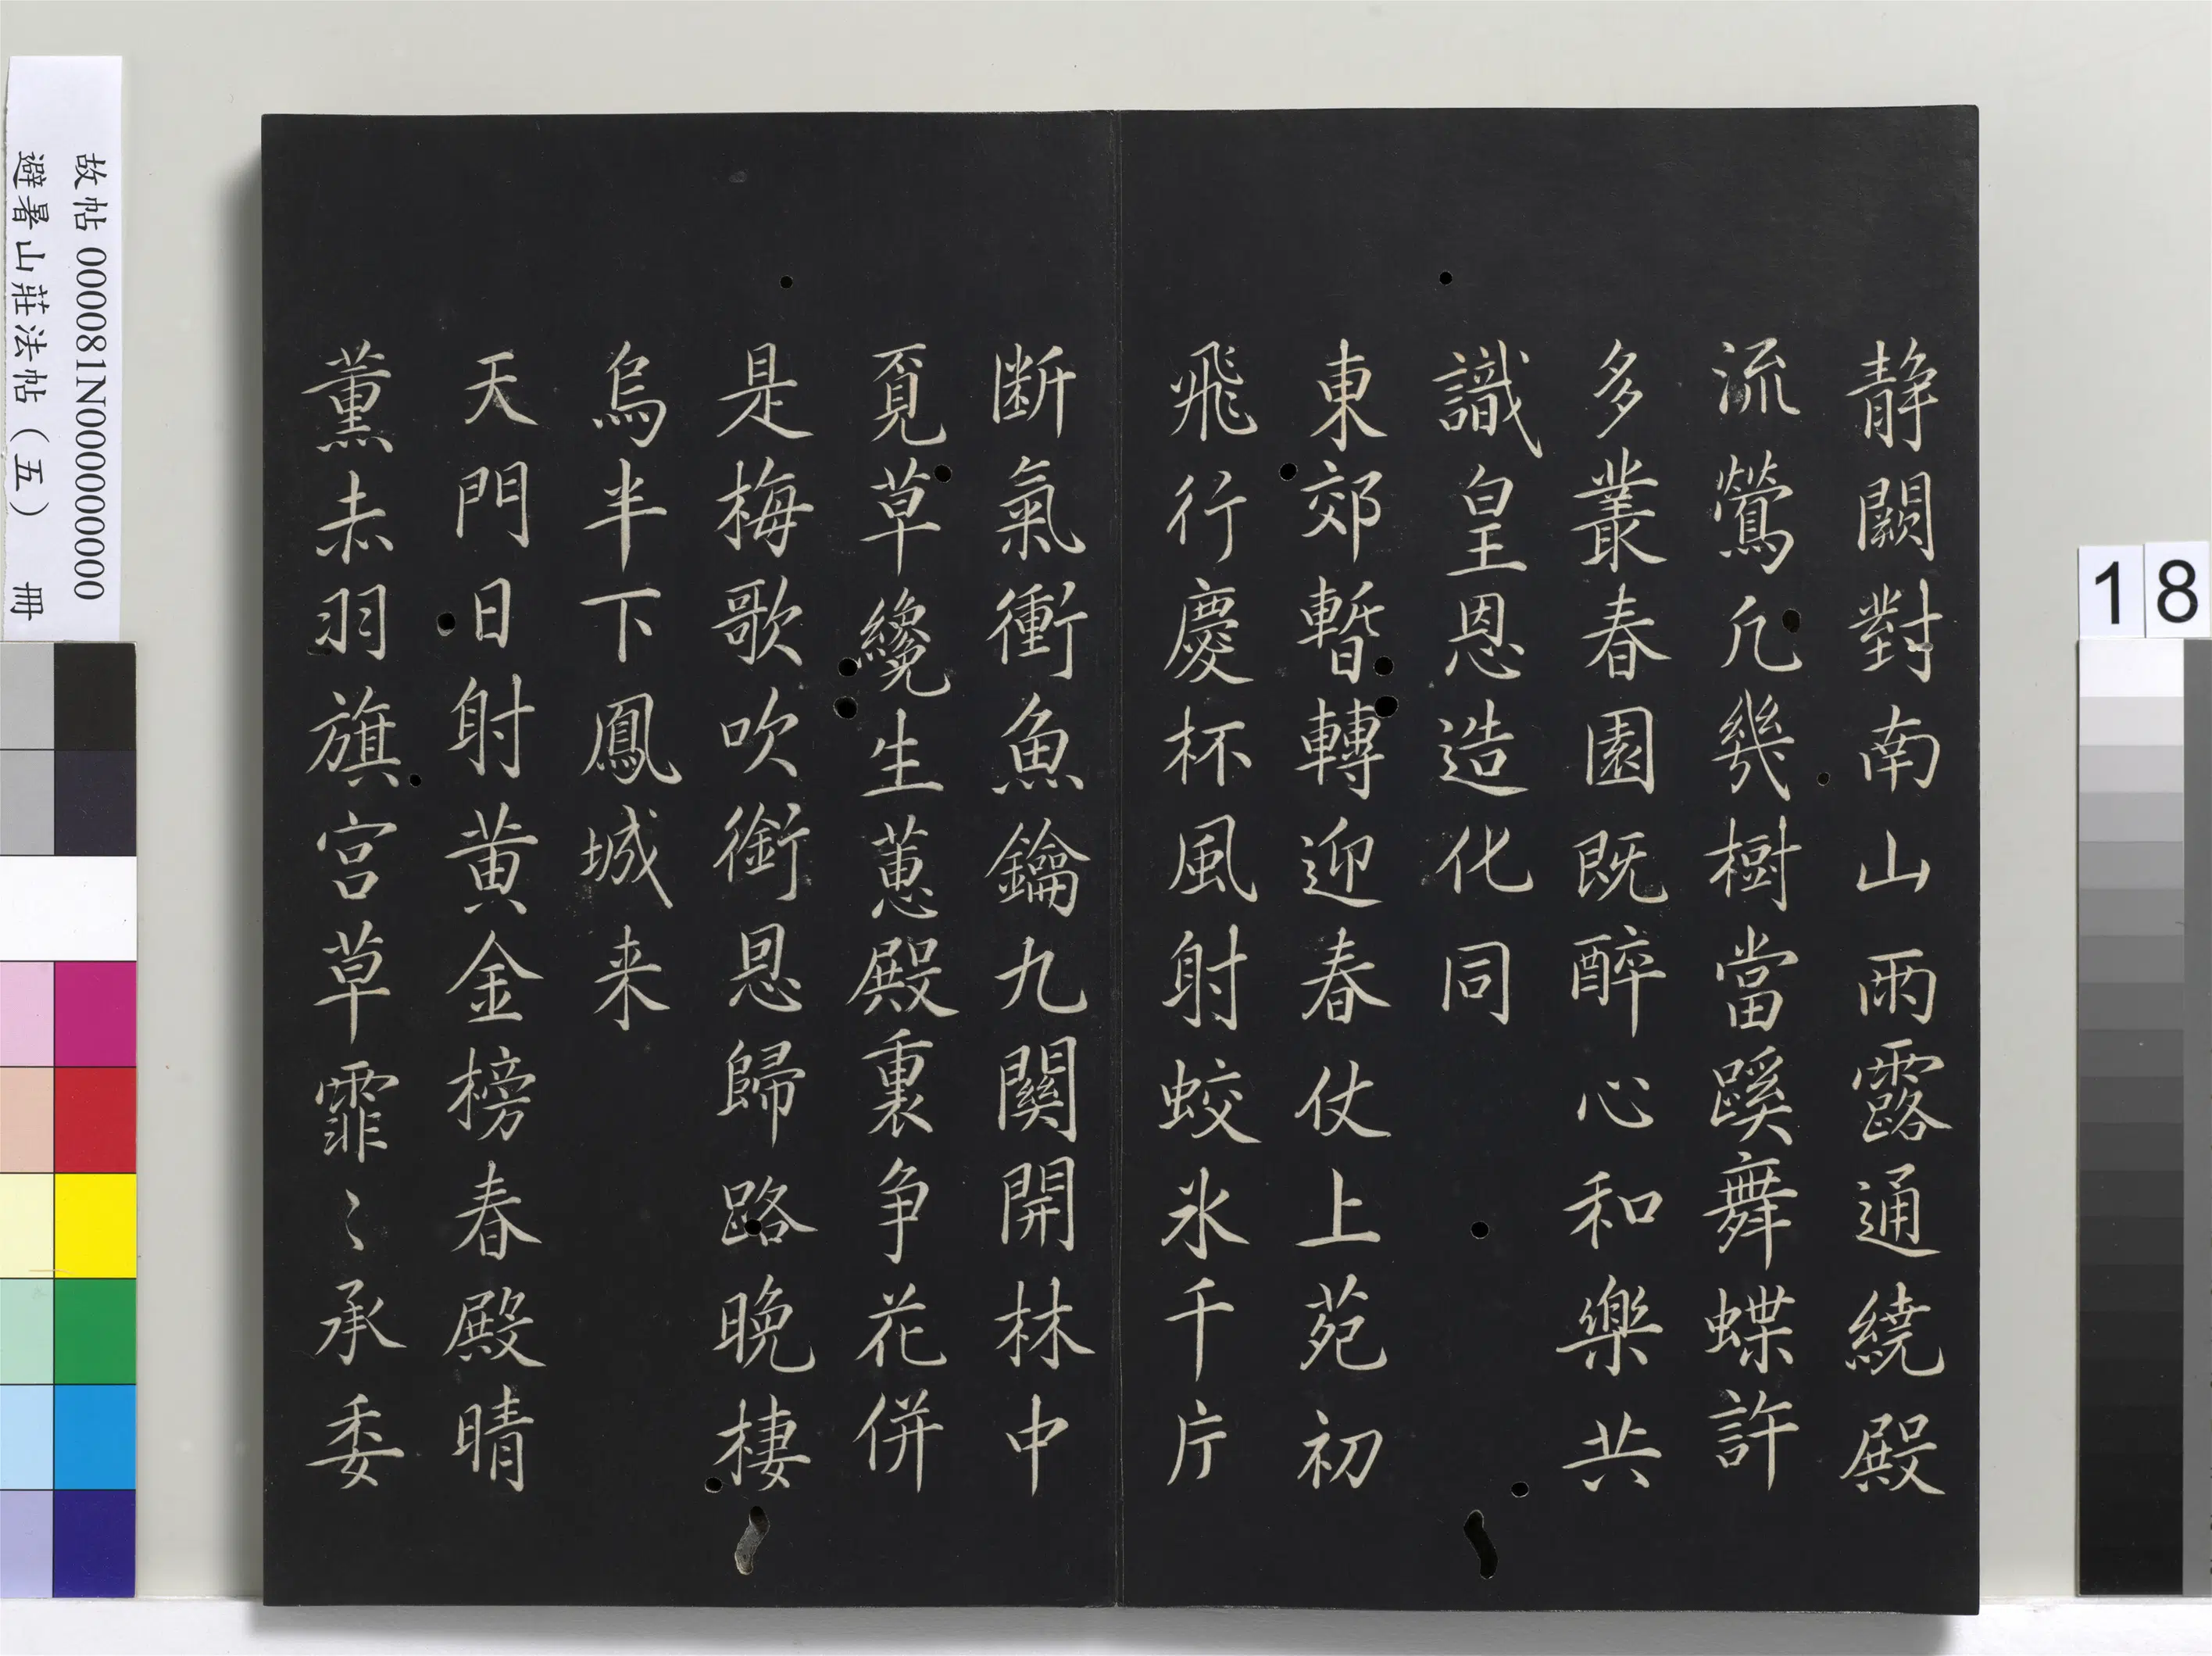 靜闕對南山雨露通繞殿
流鶯凢幾樹當蹊舞蝶許
多叢春園既醉心和樂共
識皇恩造化同
東郊暫轉迎春仗上苑初
飛行慶杯風射蛟氷千片
断氣衝魚鑰九關開林中
覓草纔生蕙殿裏争花併
是梅歌吹銜恩歸路晚棲
烏半下鳳城来
天門日射黄金榜春殿晴
薰赤羽旗宫草霏〻承委
故帖 000081N000000000
避暑山莊法帖（五） 冊
18